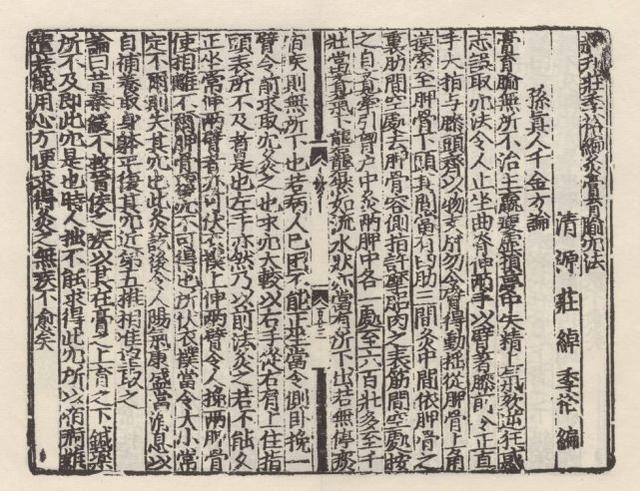 新刊莊季裕編灸膏肓腧穴法
清源莊綽季裕編
孫真人千金方論
膏肓腧無所不治主羸瘦虛損夢中失精上氣欬逆狂惑
志誤取穴法令人止坐曲脊伸兩手以臂著膝前令正直
手大指与膝頭齊以物支肘勿令臂得動搖從胛骨上角
摸索至胛骨下頭其間當有四肋三間灸中間依胛骨之
裏肋間空處去胛骨容側指許摩𦛗肉之表筋間空處按
之自覺牽引胷户中灸兩胛中各一處至六百壯多至千
壯當覺氣下礱礱然如流水狀亦當有所下出若無停痰
宿疾則無所下也若病人已困不能正坐當令側卧挽一
臂令前求取穴灸之也求穴大較以右手從右肩上住指
頭表所不及者是也左手亦然乃以前法灸之若不能久
正坐常伸兩臂者亦可伏衣襆上伸兩臂令人挽兩胛骨
使相離不爾胛骨覆穴不可得也所伏衣襆當令大小常
定不爾則失其穴也此灸訖後令人陽氣康盛當消息以
自補養取身躰平復其穴近第五椎相准望取之
論曰昔秦緩不救晉侯之疾以其在膏之上肓之下鍼藥
所不及即此穴是也時人拙不能求得此穴所以宿痾難
遣若能用心方便求得灸之無疾不愈矣